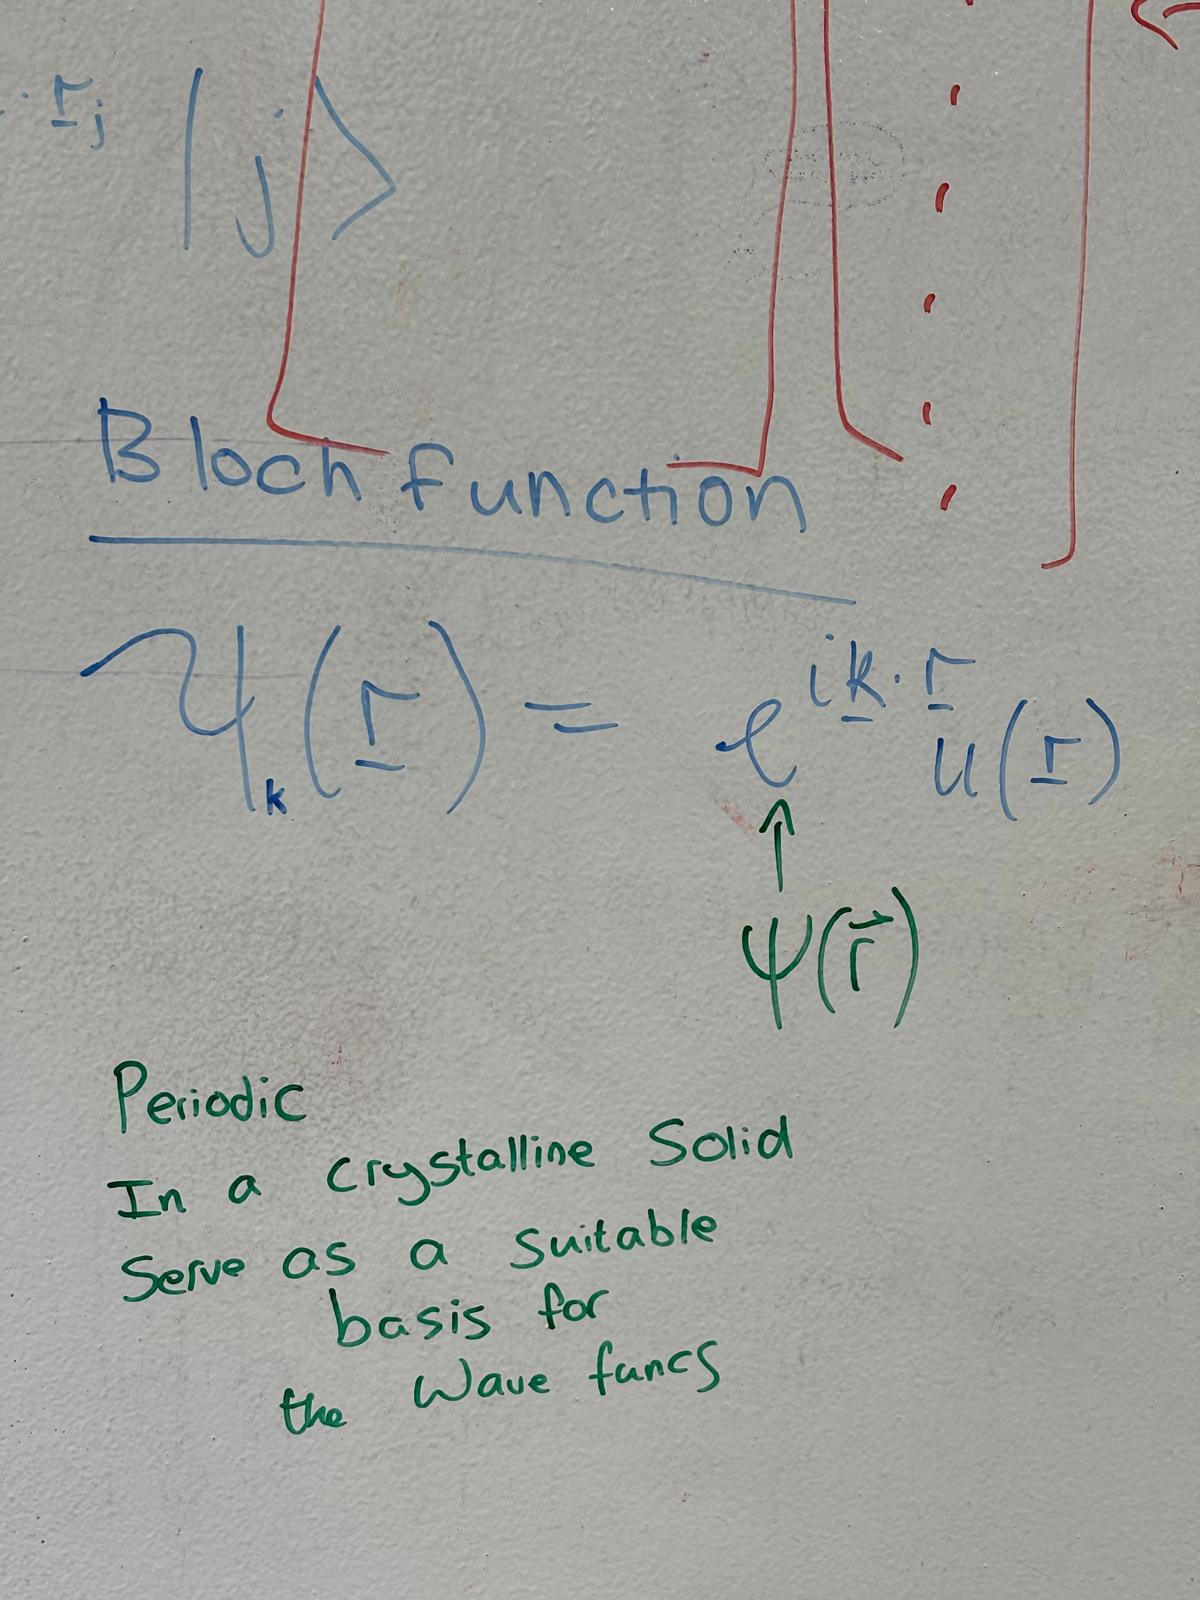 · r̲ⱼ |j⟩
Bloch function
Ψₖ(r̲) = e^{ik̲·r̲} u(r̲)
↑
ψ(r⃗)
Periodic
In a crystalline Solid
Serve as a suitable
basis for
the Wave funcs